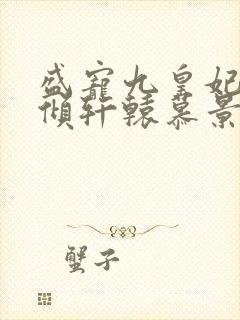 盛宠九皇妃
倾轩辕慕景
蟹子